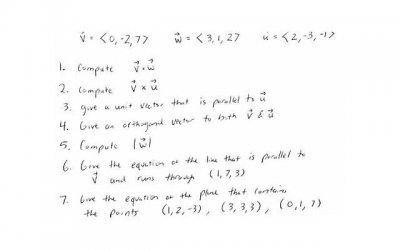 v⃗ = <0,-2,7> w⃗ = <3,1,2> u⃗ = <2,-3,-1>
1. Compute v⃗ · w⃗
2. Compute v⃗ × u⃗
3. give a unit vector that is parallel to u⃗
4. Give an orthogonal vector to both v⃗ & u⃗
5. Compute |w⃗|
6. Give the equation of the line that is parallel to
v⃗ and runs through (1,7,3)
7. Give the equation of the plane that contains
the points (1,2,-3), (3,3,3), (0,1,7)